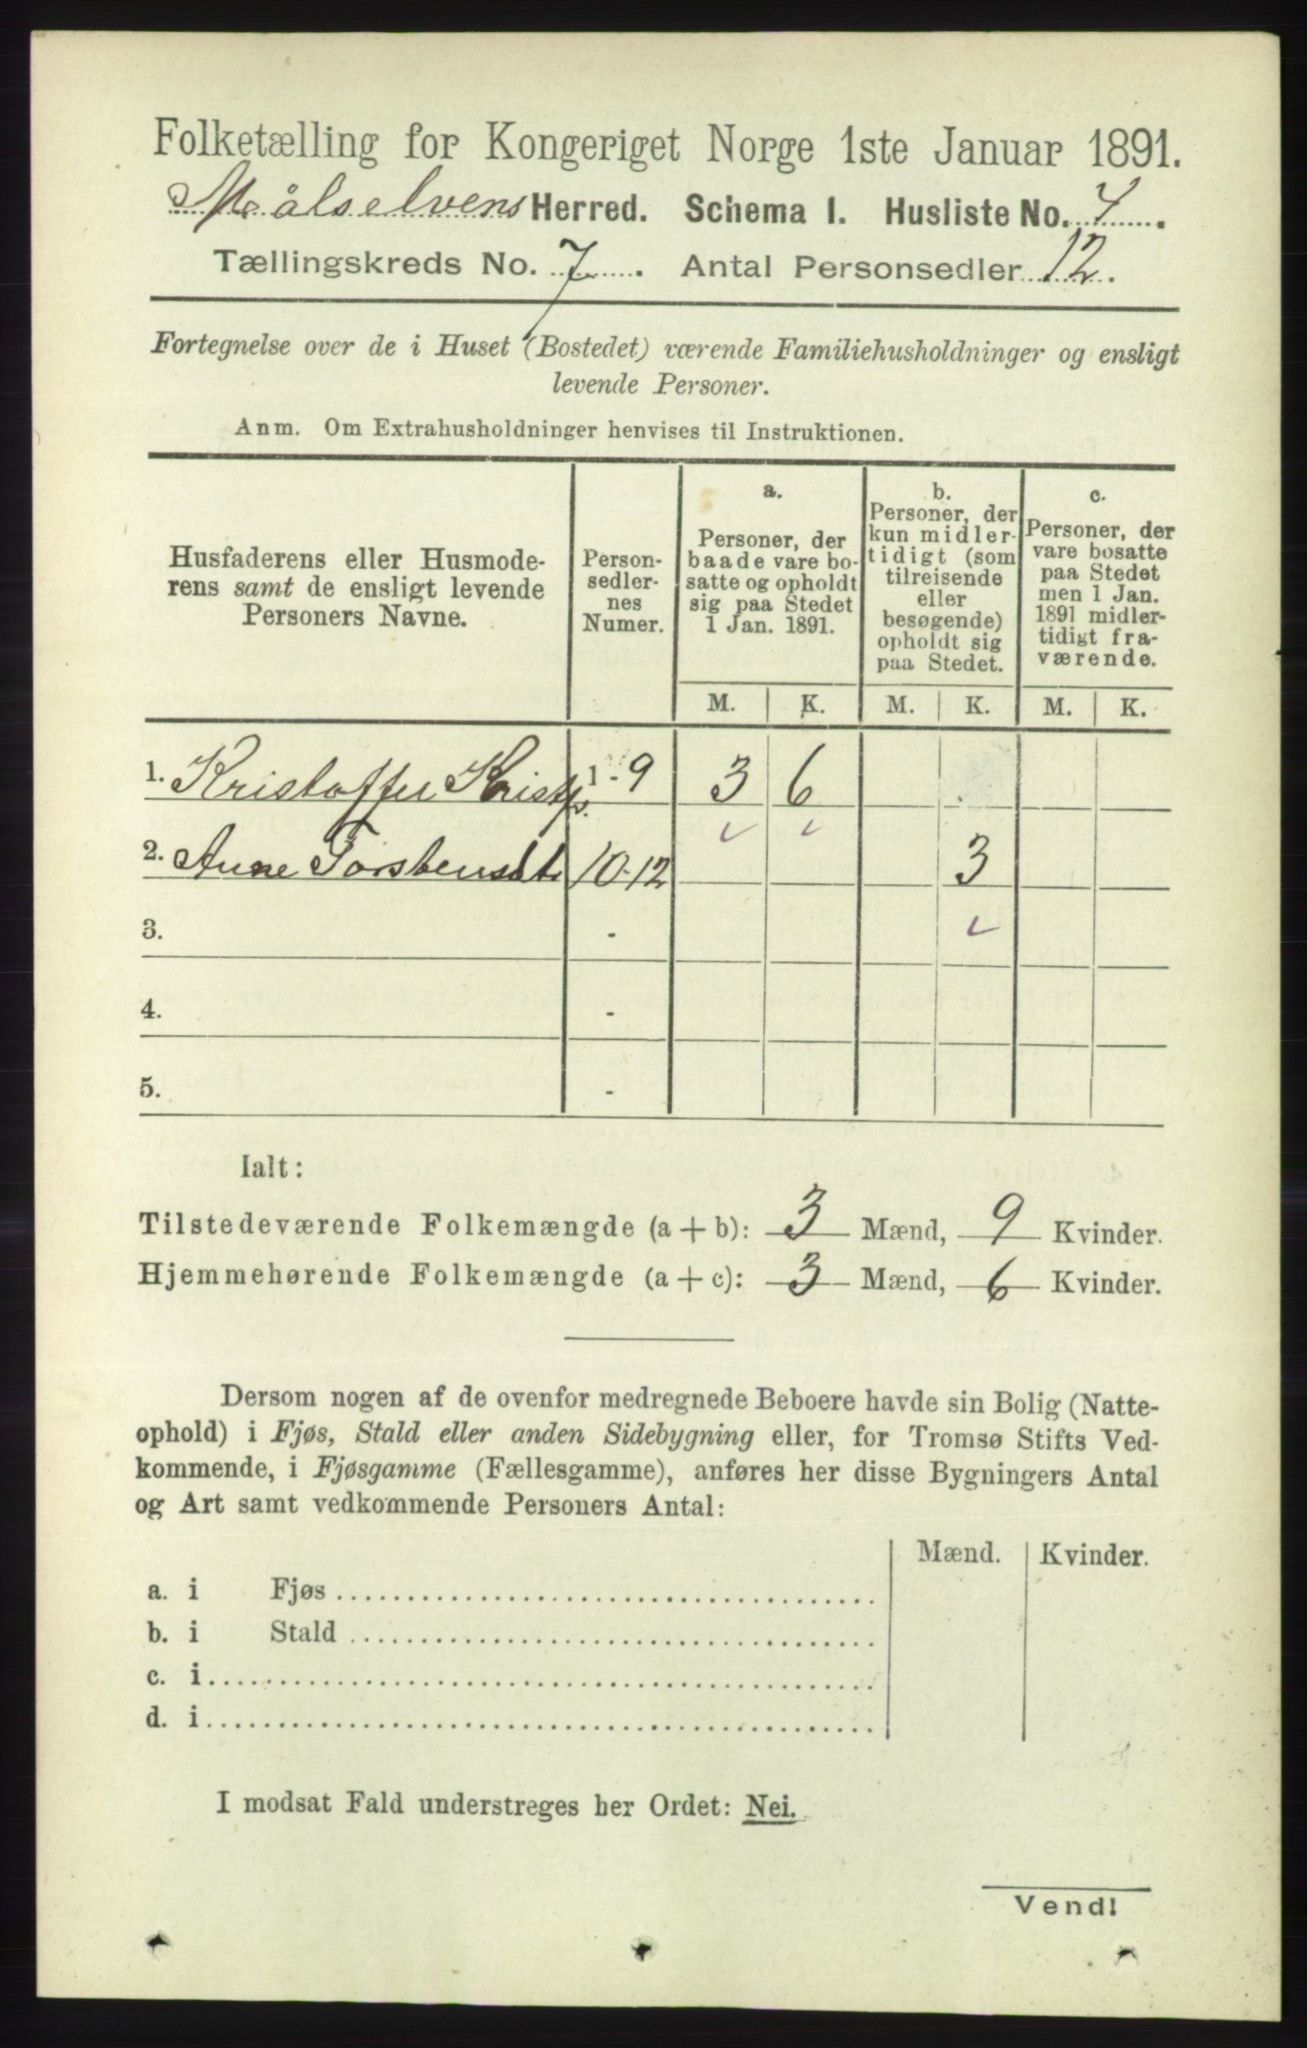 Folketælling for Kongeriget Norge 1ste Januar 1891.
Målselvens Herred. Schema 1. Husliste No. 4.
Tællingskreds No. 7. Antal Personsedler 12.
Fortegnelse over de i Huset (Bostedet) værende Familiehusholdninger og ensligt
levende Personer.
Anm. Om Extrahusholdninger henvises til Instruktionen.
Husfaderens eller Husmode-
rens samt de ensligt levende
Personers Navne.
Person-
sedler-
nes
Numer.
a.
Personer, der
baade vare bo-
satte og opholdt
sig paa Stedet
1 Jan. 1891.
b.
Personer, der
kun midler-
tidigt (som
tilreisende
eller
besøgende)
opholdt sig
paa Stedet.
c.
Personer, der
vare bosatte
paa Stedet
men 1 Jan.
1891 midler-
tidigt fra-
værende.
M. K. M. K. M. K.
1. Kristoffer Kristfs. 1-9 3 6
2. Anne Torstensdt. 10-12 3
3. -
4. -
5. -
Ialt:
Tilstedeværende Folkemængde (a + b): 3 Mænd, 9 Kvinder.
Hjemmehørende Folkemængde (a + c): 3 Mænd, 6 Kvinder.
Dersom nogen af de ovenfor medregnede Beboere havde sin Bolig (Natte-
ophold) i Fjøs, Stald eller anden Sidebygning eller, for Tromsø Stifts Ved-
kommende, i Fjøsgamme (Fællesgamme), anføres her disse Bygningers Antal
og Art samt vedkommende Personers Antal:
Mænd. Kvinder.
a. i Fjøs
b. i Stald
c. i
d. i
I modsat Fald understreges her Ordet: Nei.
Vend!